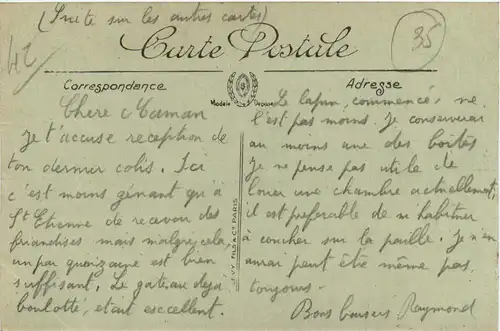 (Suite sur les autres cartes)
42
35
Carte Postale
Correspondance
Adresse
Modèle Déposé
Chère Maman
Je t'accuse reception de
ton dernier colis. Ici
c'est moins gênant qu'à
St Etienne de recevoir des
friandises mais malgré cela
un par quinzaine est bien
suffisant. Le gateau déjà
boulotté, était excellent.
Le lapin, commencé ne
l'est pas moins. Je conserverai
au moins une des boîtes
Je ne pense pas utile de
louer une chambre actuellement,
il est préferable de m'habituer
à coucher sur la paille. Je n'en
aurai peut être même pas
toujours.
Bons baisers Raymond
FILS & Cie PARIS